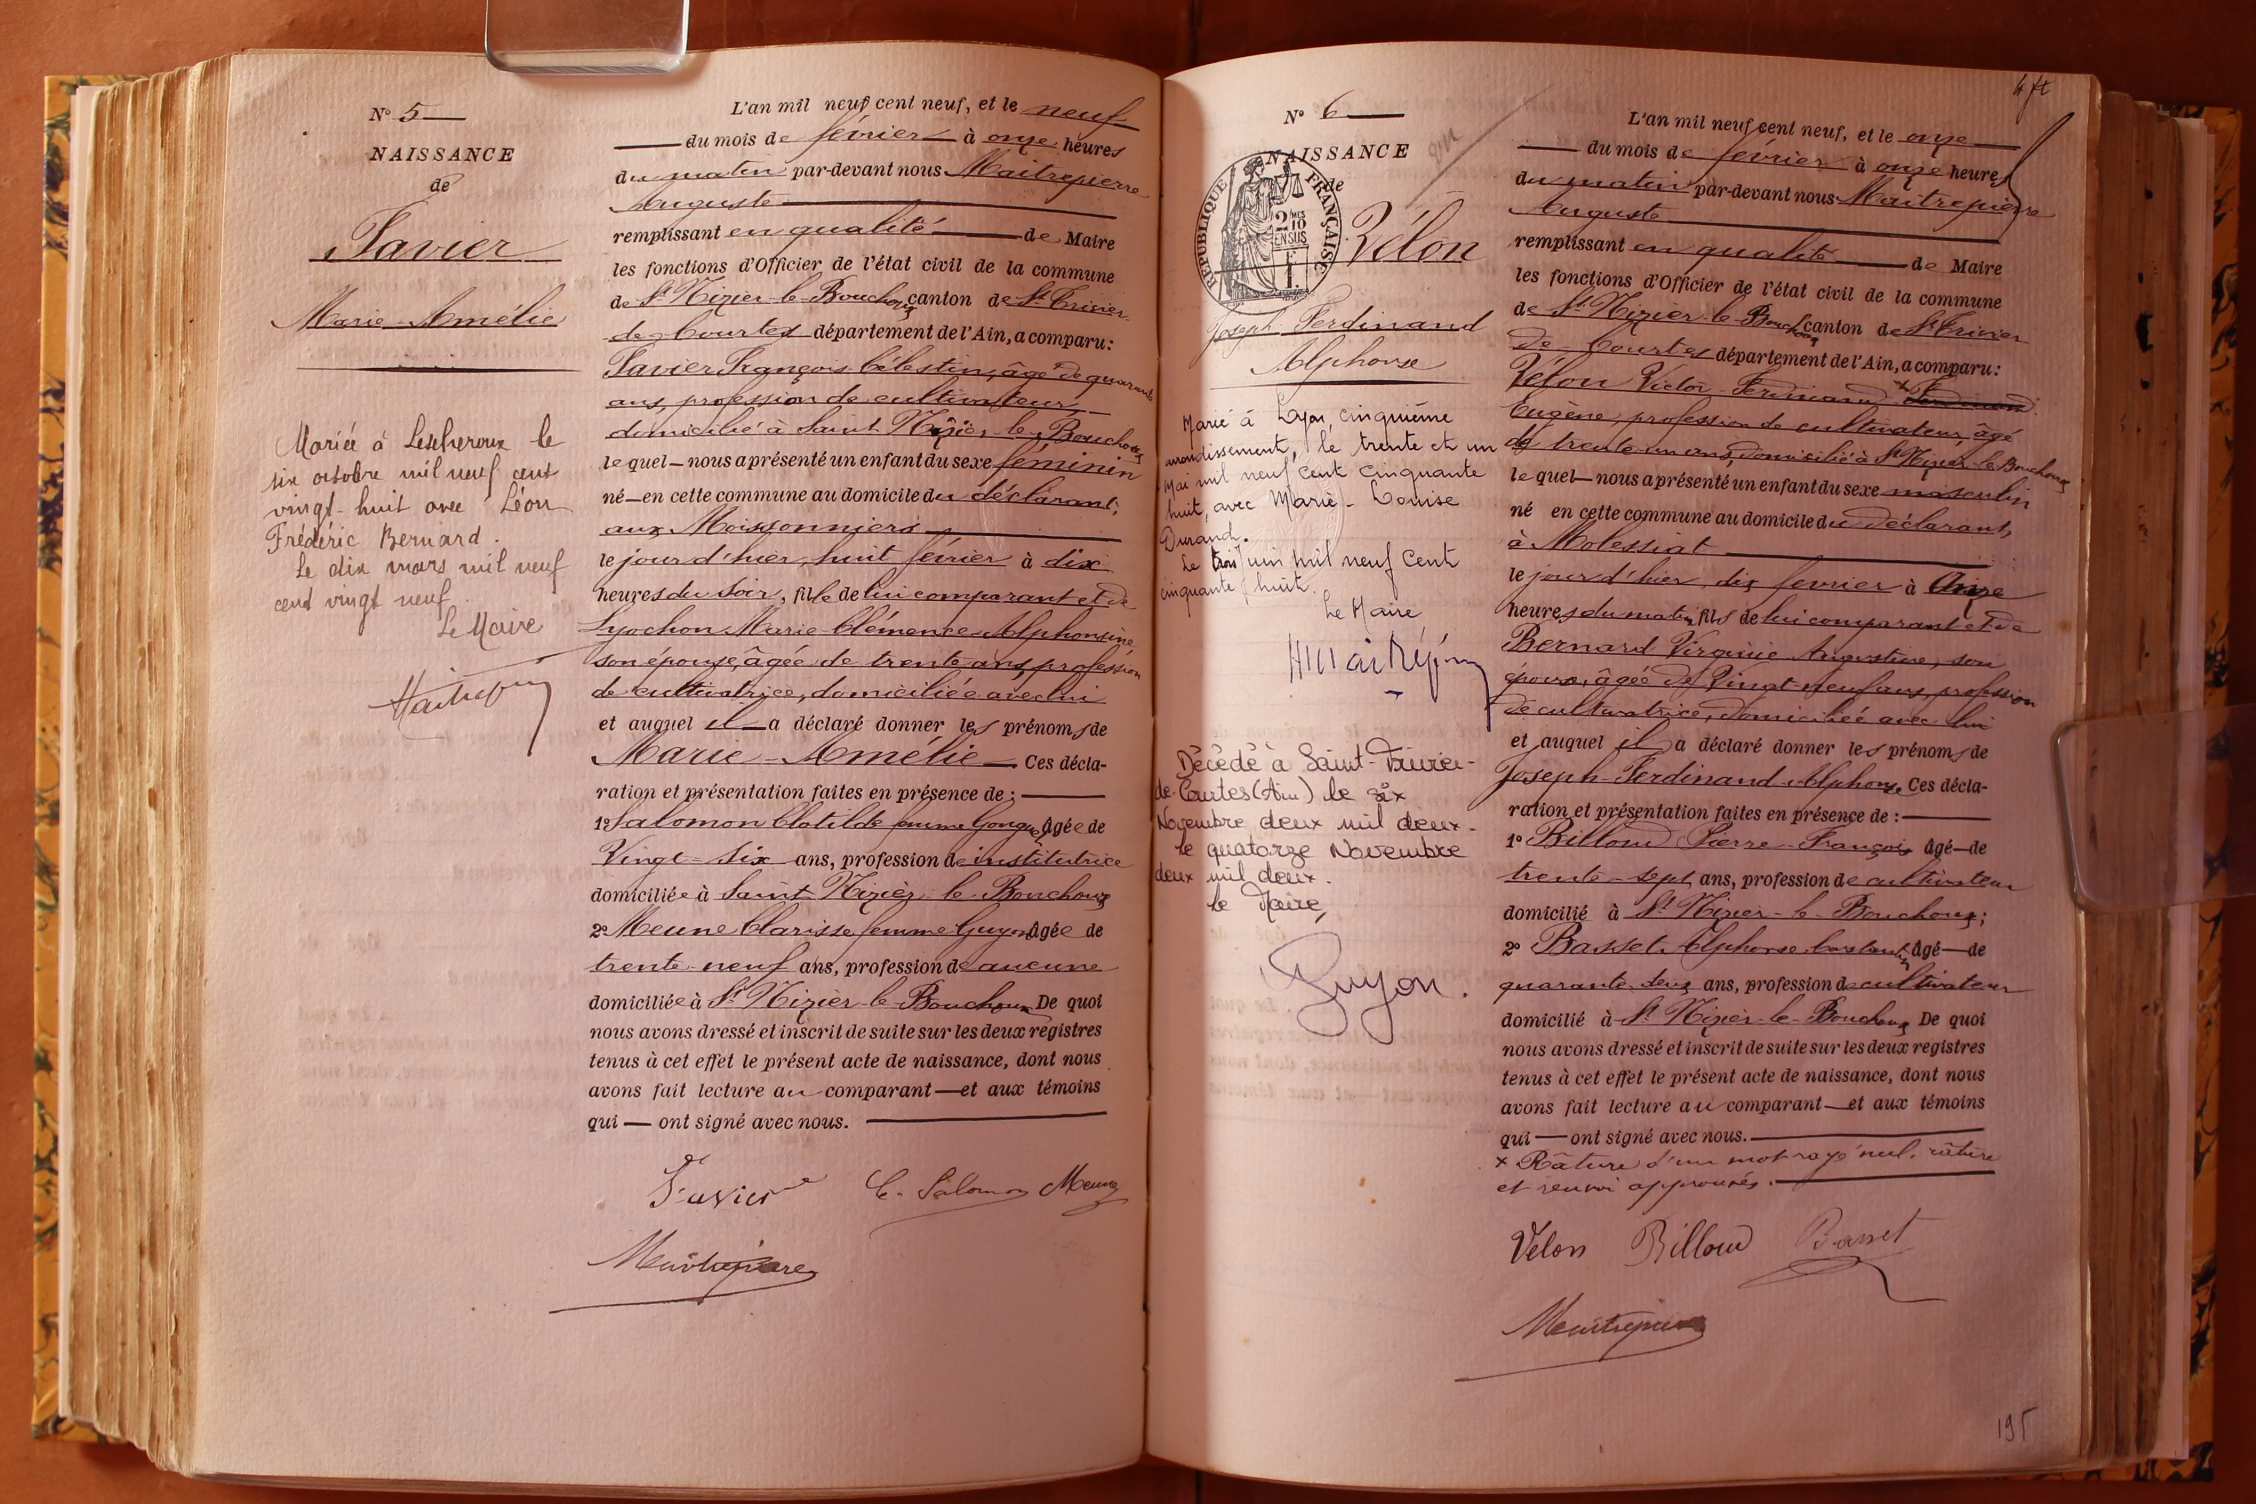 N° 5
NAISSANCE
de
Favier
Marie-Amélie
Mariée à Lescheroux le
six octobre mil neuf cent
vingt-huit avec Léon
Frédéric Bernard.
Le dix mars mil neuf
cent vingt neuf.
Le Maire
L'an mil neuf cent neuf, et le neuf
du mois de février à onze heures
du matin par-devant nous Maitrepierre
Auguste
remplissant en qualité de Maire
les fonctions d'Officier de l'état civil de la commune
de St Nizier-le-Bouchoux canton de St Trivier-
de-Courtes département de l'Ain, a comparu:
Favier François Célestin, âgé de quarante
ans, profession de cultivateur,
domicilié à Saint Nizier-le-Bouchoux
le quel nous a présenté un enfant du sexe féminin
né en cette commune au domicile du déclarant,
aux Moissonniers
le jour d'hier, huit février à dix
heures du soir, fille de lui comparant et de
Lyochon Marie Clémence Alphonsine,
son épouse, âgée de trente ans, profession
de cultivatrice, domiciliée avec lui
et auquel il a déclaré donner les prénoms de
Marie-Amélie Ces décla-
ration et présentation faites en présence de:
1° Salomon Clotilde femme Gonguet âgée de
Vingt-six ans, profession de institutrice
domiciliée à Saint Nizier-le-Bouchoux
2° Meune Clarisse femme Guyon âgée de
trente-neuf ans, profession de aucune
domiciliée à St Nizier-le-Bouchoux De quoi
nous avons dressé et inscrit de suite sur les deux registres
tenus à cet effet le présent acte de naissance, dont nous
avons fait lecture au comparant et aux témoins
qui ont signé avec nous.
Favier C. Salomon Meune
Maitrepierre
N° 6
NAISSANCE
de
RÉPUBLIQUE FRANÇAISE
2/10 EN SUS
1 F.
Vélon
Joseph Ferdinand
Alphonse
Marié à Lyon, cinquième
arrondissement, le trente et un
Mai mil neuf cent cinquante
huit, avec Marie-Louise
Durand.
Le trois Juin mil neuf cent
cinquante huit.
Le Maire
Décédé à Saint-Trivier-
de-Courtes (Ain) le six
Novembre deux mil deux-
le quatorze Novembre
deux mil deux.
le Maire,
Guyon.
4 ft
L'an mil neuf cent neuf, et le onze
du mois de février à onze heures
du matin par-devant nous Maitrepierre
Auguste
remplissant en qualité de Maire
les fonctions d'Officier de l'état civil de la commune
de St Nizier-le-Bouchoux canton de St Trivier
de Courtes département de l'Ain, a comparu:
Vélon Victor Ferdinand x Ferdinand
Eugène, profession de cultivateur, âgé
de trente-un ans, domicilié à St Nizier-le-Bouchoux
le quel nous a présenté un enfant du sexe masculin
né en cette commune au domicile du déclarant,
à Molessiat
le jour d'hier, dix février à Onze
heures du matin, fils de lui comparant et de
Bernard Virginie Augustine, son
épouse, âgée de Vingt-neuf ans, profession
de cultivatrice, domiciliée avec lui
et auquel il a déclaré donner les prénoms de
Joseph-Ferdinand-Alphonse Ces décla-
ration et présentation faites en présence de:
1° Billoud Pierre-François âgé de
trente-sept ans, profession de cultivateur
domicilié à St Nizier-le-Bouchoux;
2° Basset Alphonse Constantin âgé de
quarante deux ans, profession de cultivateur
domicilié à St Nizier-le-Bouchoux De quoi
nous avons dressé et inscrit de suite sur les deux registres
tenus à cet effet le présent acte de naissance, dont nous
avons fait lecture au comparant et aux témoins
qui ont signé avec nous.
x Râture d'un mot rayé nul, râture
et renvoi approuvés.
Velon Billoud Basset
Maitrepierre
195